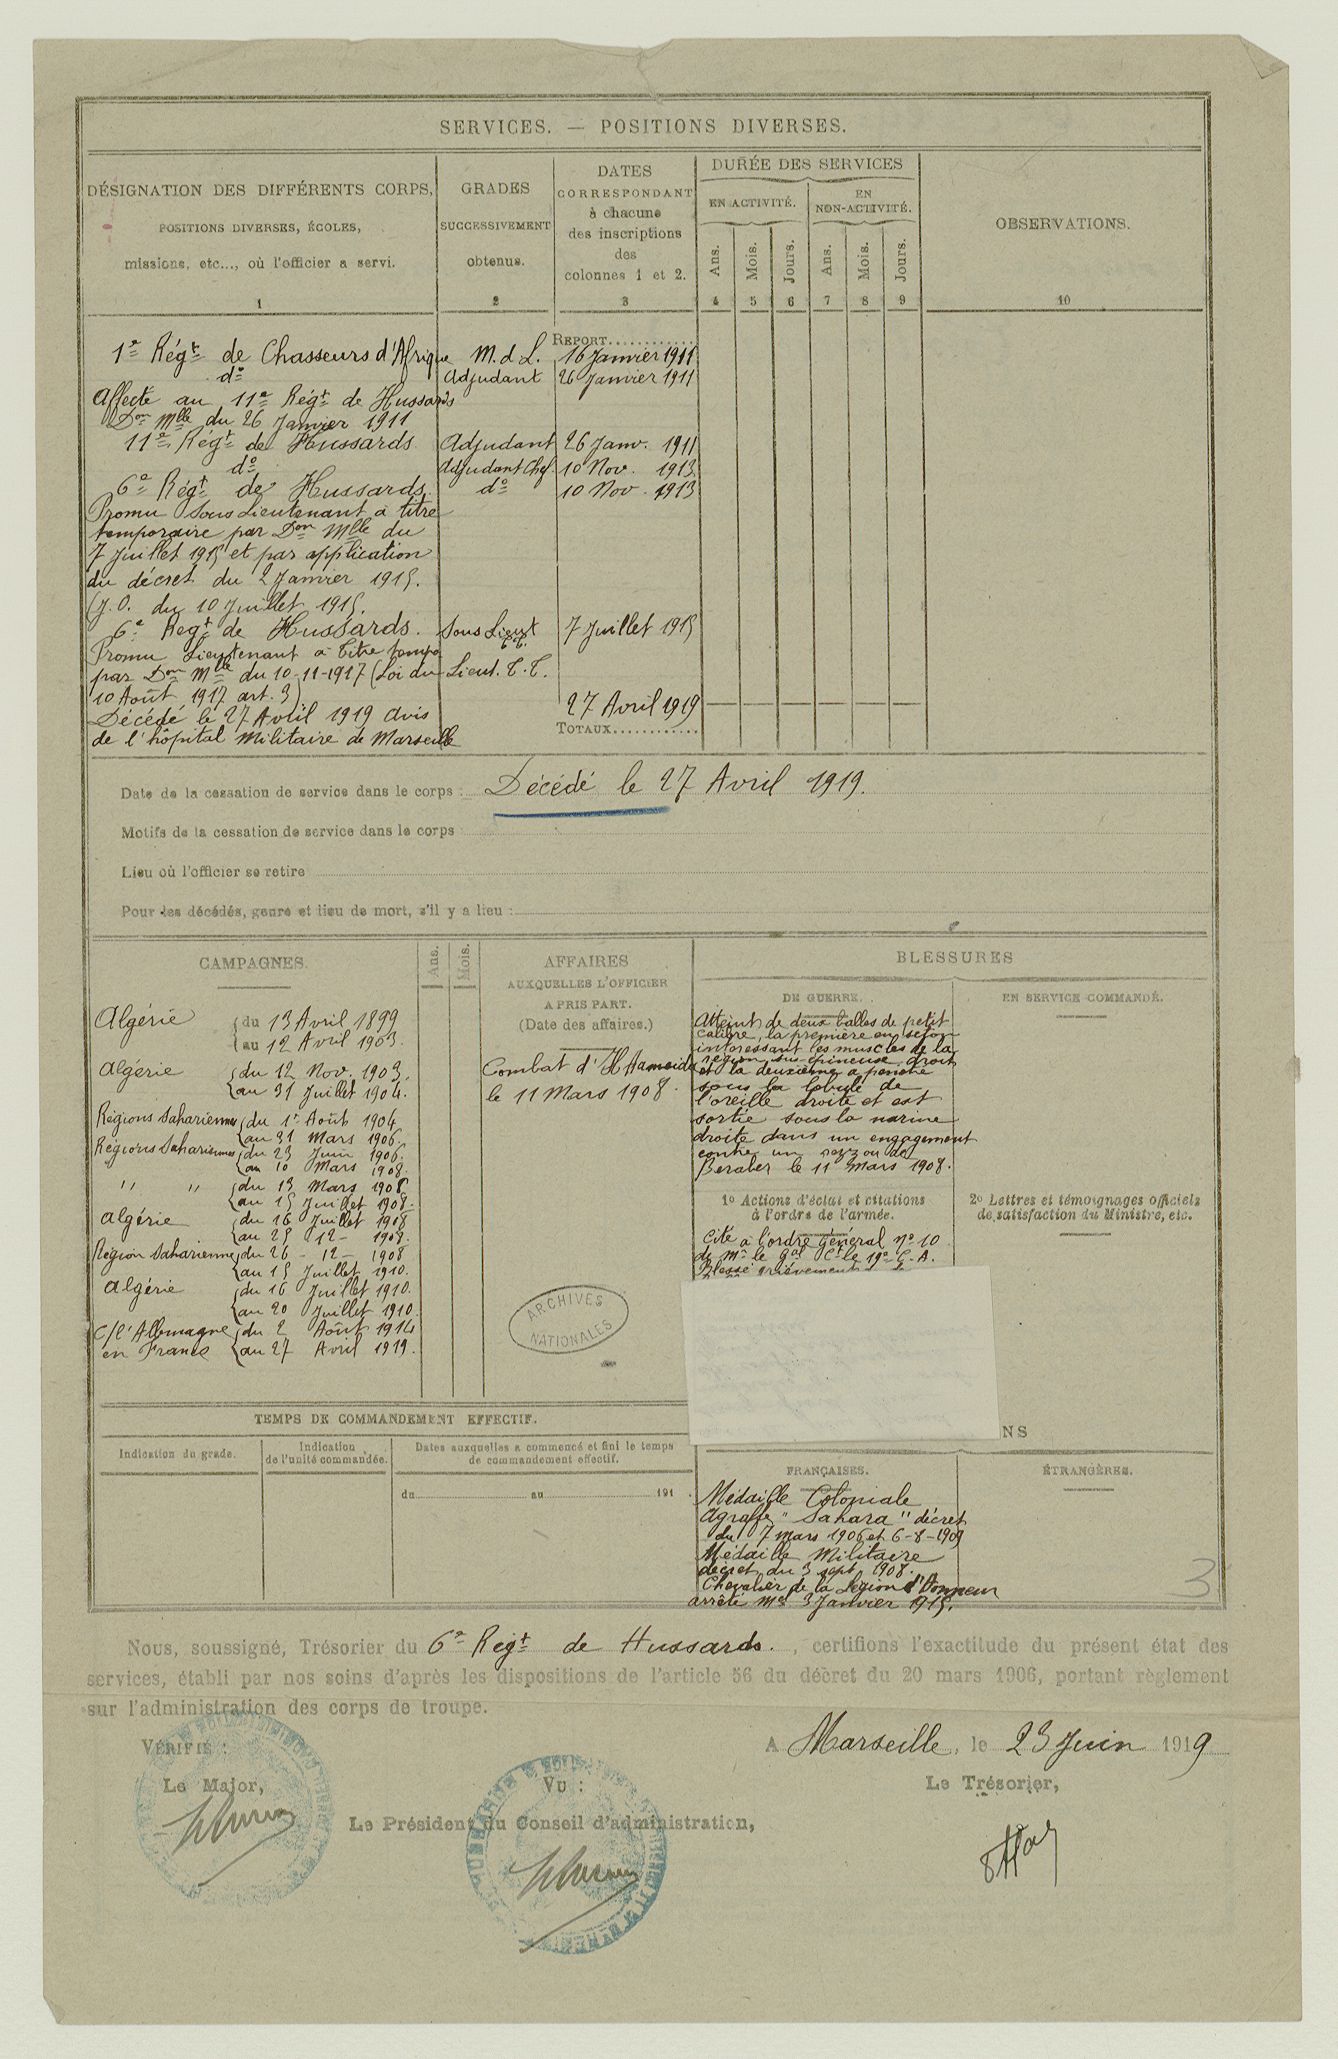 SERVICES. — POSITIONS DIVERSES.
DÉSIGNATION DES DIFFÉRENTS CORPS,
POSITIONS DIVERSES, ÉCOLES,
missions, etc..., où l'officier a servi.
1
GRADES
SUCCESSIVEMENT
obtenus.
2
DATES
CORRESPONDANT
à chacune
des inscriptions
des
colonnes 1 et 2.
3
DURÉE DES SERVICES
EN ACTIVITÉ.
EN
NON-ACTIVITÉ.
Ans. Mois. Jours. Ans. Mois. Jours.
4 5 6 7 8 9
OBSERVATIONS.
10
REPORT............
1er Régt de Chasseurs d'Afrique M. d L. 16 Janvier 1911
do Adjudant 26 Janvier 1911
Affecté au 11e Régt de Hussards
Don Mlle du 26 Janvier 1911
11e Régt de Hussards Adjudant 26 Janv. 1911
do Adjudant Chef 10 Nov. 1913
6e Régt de Hussards do 10 Nov. 1913
Promu Sous Lieutenant à titre
temporaire par Don Mlle du
7 Juillet 1915 et par application
du décret du 2 Janvier 1915.
(J.O. du 10 Juillet 1915.
6e Regt de Hussards. Sous Lieut T.T. 7 Juillet 1915
Promu Lieutenant à titre tempo
par Don Mlle du 10-11-1917 (Loi du Lieut. T.T.
10 Août 1917 art. 3)
Décédé le 27 Avril 1919 avis 27 Avril 1919
de l'hôpital Militaire de Marseille
TOTAUX............
Date de la cessation de service dans le corps : Décédé le 27 Avril 1919.
Motifs de la cessation de service dans le corps
Lieu où l'officier se retire
Pour les décédés, genre et lieu de mort, s'il y a lieu :
CAMPAGNES.
Ans. Mois.
Algérie du 13 Avril 1899
au 12 Avril 1903.
Algérie du 12 Nov. 1903.
au 31 Juillet 1904.
Régions Sahariennes du 1er Août 1904
au 31 Mars 1906.
Régions Sahariennes du 23 Juin 1906.
au 10 Mars 1908.
" " du 13 Mars 1908
au 15 Juillet 1908.
Algérie du 16 Juillet 1908
au 25 12 - 1908.
Région Saharienne du 26 - 12 - 1908
au 15 Juillet 1910.
Algérie du 16 Juillet 1910.
au 20 Juillet 1910.
C/l'Allemagne du 2 Août 1914
en France au 27 Avril 1919.
AFFAIRES
AUXQUELLES L'OFFICIER
A PRIS PART.
(Date des affaires.)
Combat d'H
le 11 Mars 1908.
ARCHIVES
NATIONALES
BLESSURES
DE GUERRE.
Atteint de deux balles de petit
calibre, la première en séton
intéressant les muscles de la
région sus-épineuse droite
et la deuxième a pénétré
sous la lobule de
l'oreille droite et est
sortie sous la narine
droite dans un engagement
contre un rezzou de
Beraber le 11 Mars 1908.
EN SERVICE COMMANDÉ.
1º Actions d'éclat et citations
à l'ordre de l'armée.
Cité à l'ordre Général No 10
de Mr le Gal Ct le 19e C. A.
Blessé grièvement
2º Lettres et témoignages officiels
de satisfaction du Ministre, etc.
NS
TEMPS DE COMMANDEMENT EFFECTIF.
Indication du grade.
Indication
de l'unité commandée.
Dates auxquelles a commencé et fini le temps
de commandement effectif.
du au 191 .
FRANÇAISES.
Médaille Coloniale
Agrafe "Sahara" décret
du 7 mars 1906 et 6-8-1909
Médaille Militaire
décret du 3 sept 1908.
Chevalier de la Légion d'Honneur
arrêté Mel 3 Janvier 1915.
ÉTRANGÈRES.
3
Nous, soussigné, Trésorier du 6e Régt de Hussards. , certifions l'exactitude du présent état des
services, établi par nos soins d'après les dispositions de l'article 56 du décret du 20 mars 1906, portant règlement
sur l'administration des corps de troupe.
A Marseille, le 23 Juin 1919
VÉRIFIÉ :
Le Major,
Vu :
Le Président du Conseil d'administration,
Le Trésorier,